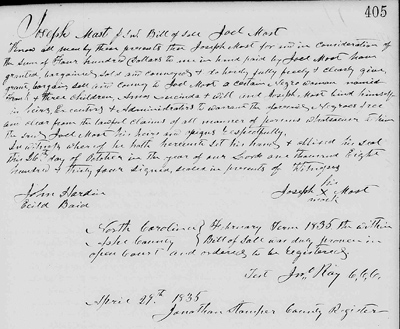 405
Joseph Mast Bill of Sale Joel Mast
Know all men by these presents that Joseph Mast for and in consideration of
the sum of Four hundred Dollars to me in hand paid by Joel Mast have
granted, bargained, sold and conveyed & do hereby fully freely & clearly give,
grant, bargain, sell and convey to Joel Mast a certain Negro woman named
& three children, and Joseph Mast bind himself
his heirs, Executors & Administrators to warrant the Negroes free
and clear from the lawful claims of all manner of persons whatsoever to him
the said Joel Mast his heirs and
In witness whereof he hath hereunto set his hand & affixed his seal
this 26th day of October in the year of our Lord one thousand Eight
hundred & thirty four signed, sealed in presents of Witnesses
John Hardin his
Baird Joseph X Mast
mark
North Carolina } February Term 1835 the within
Ashe County } Bill of Sale was duly proven in
open Court and ordered to be registered
Test Jno Ray C.C.C.
April 29th 1835
Jonathan Stamper County Register